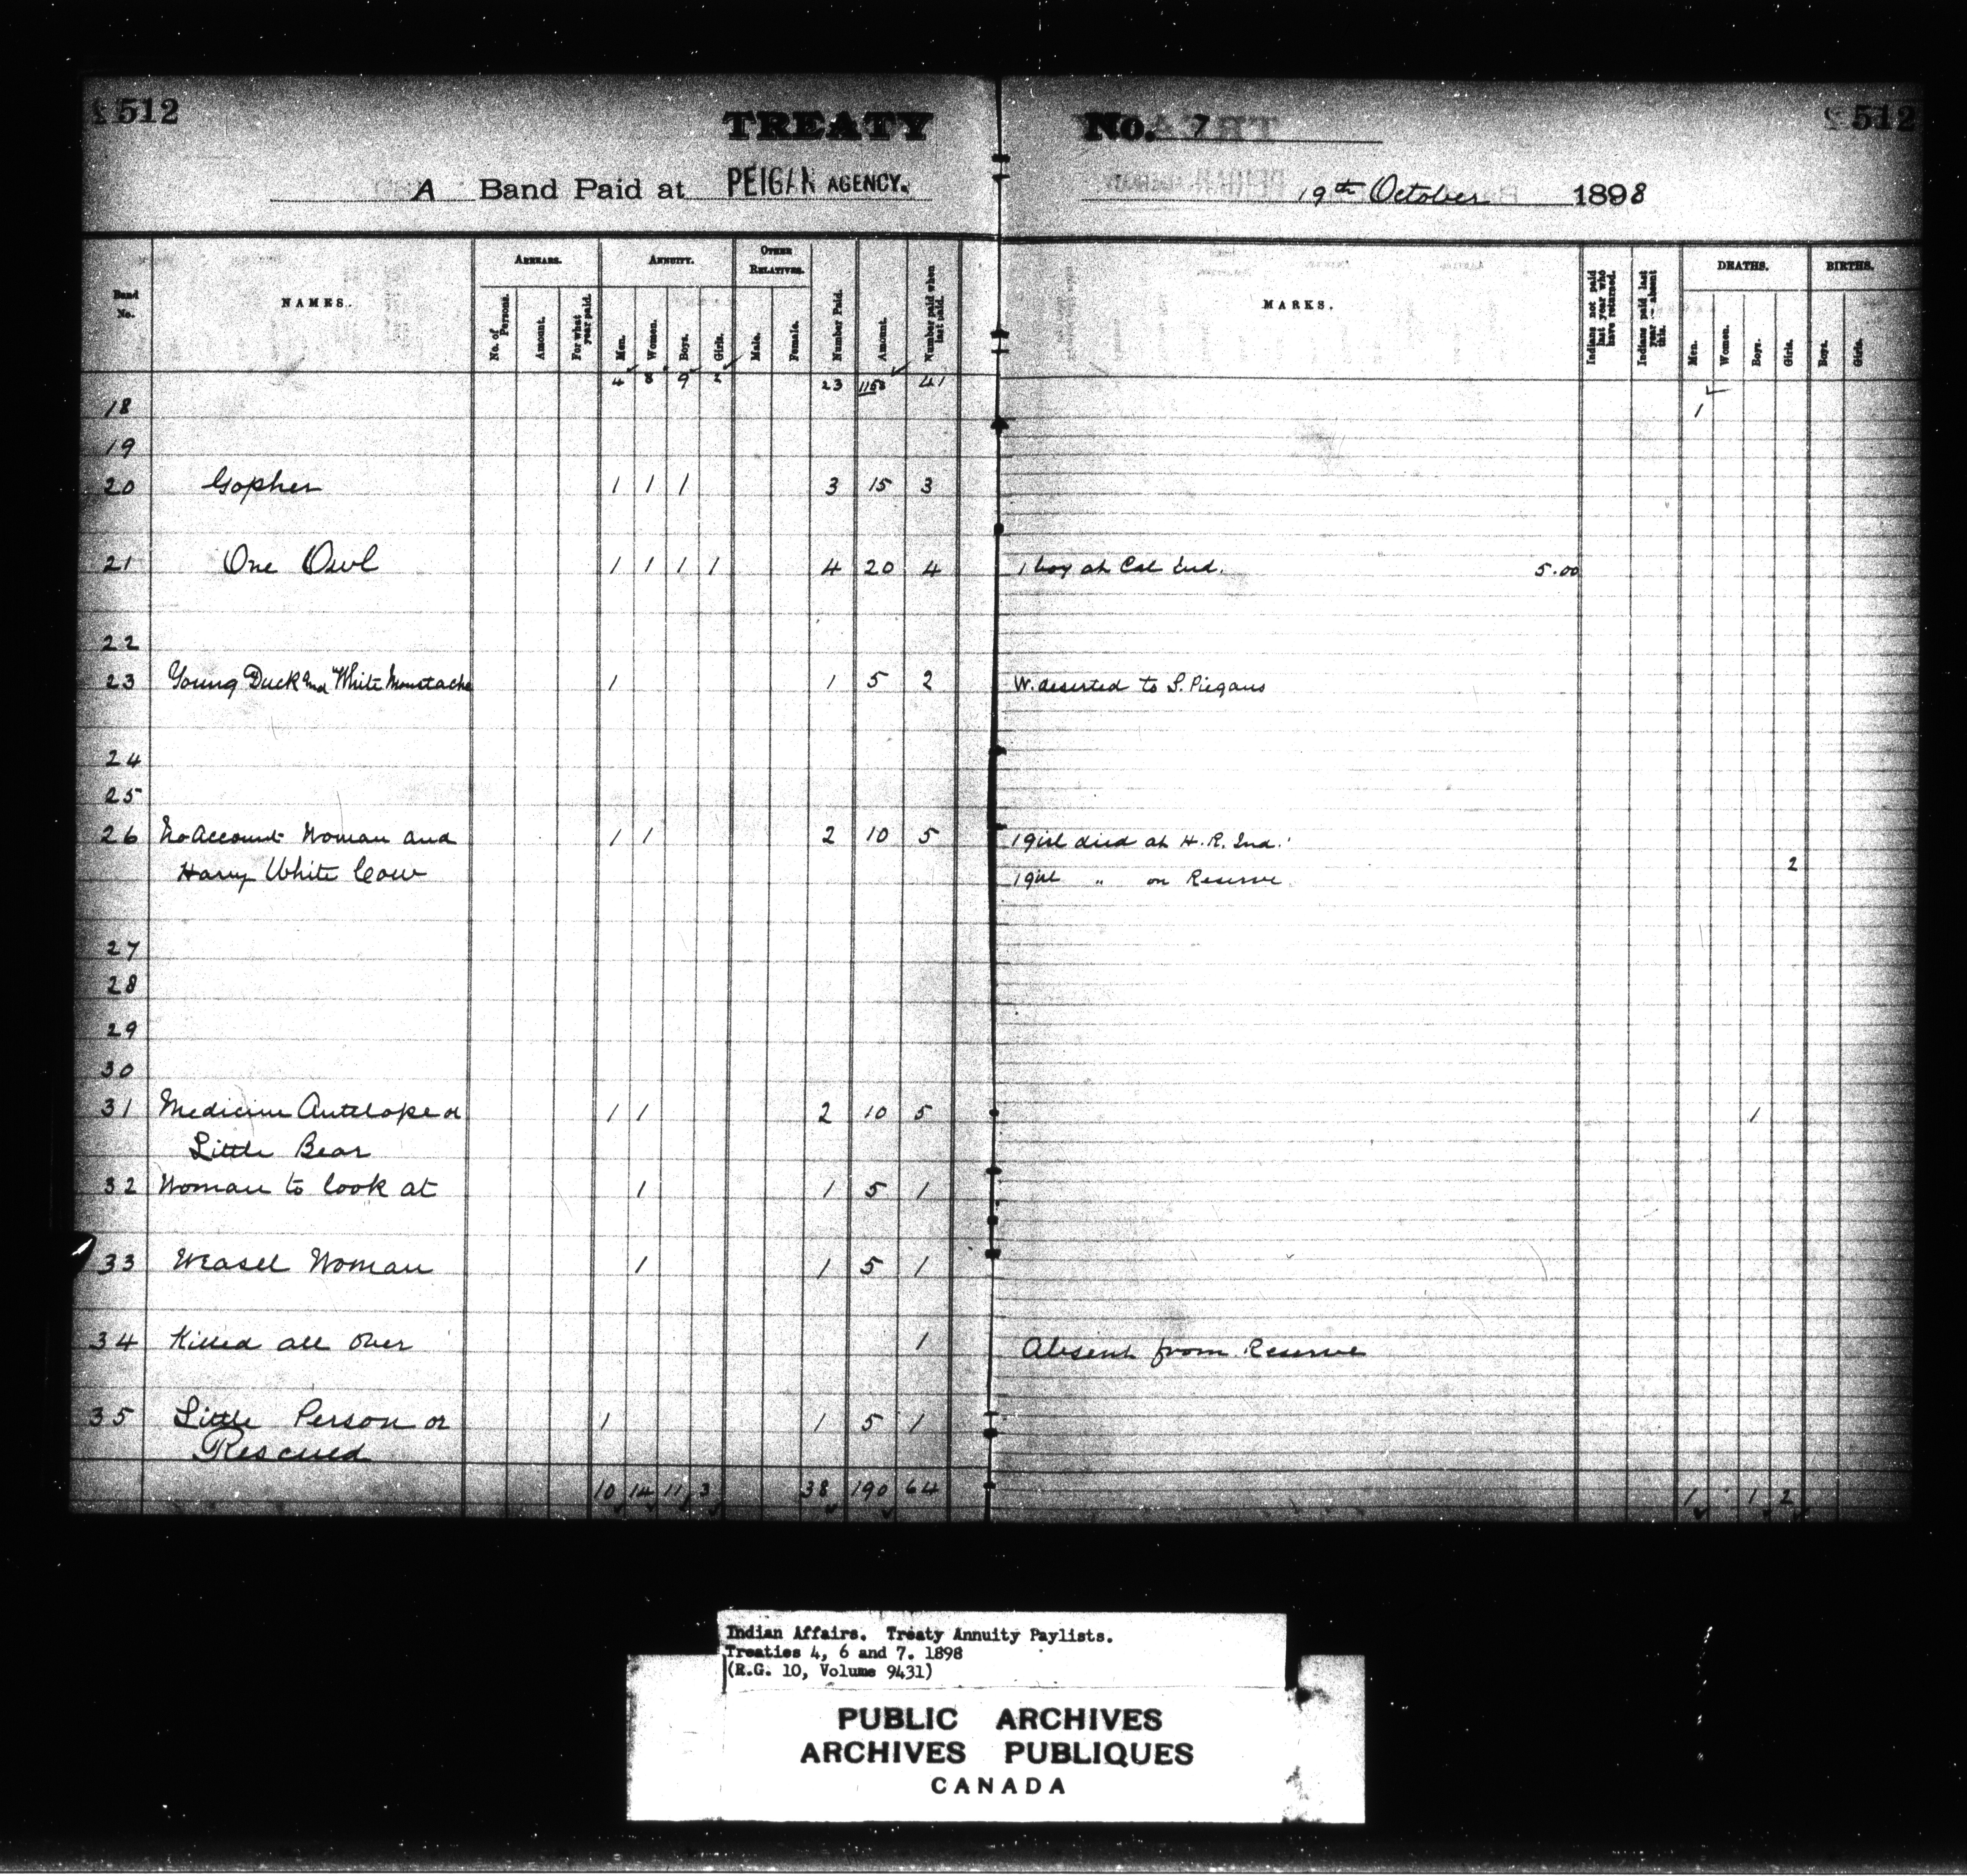 512
TREATY No. 7
512
A Band Paid at PEIGAN AGENCY. 19th October 1898
Band No.
NAMES.
ARREARS.
No. of Persons.
Amount.
For what year paid.
ANNUITY.
Men.
Women.
Boys.
Girls.
OTHER RELATIVES.
Male.
Female.
Number Paid.
Amount.
Number paid when last paid.
MARKS.
Indians not paid last year who have returned.
Indians paid last year — absent this.
DEATHS.
Men.
Women.
Boys.
Girls.
BIRTHS.
Boys.
Girls.
4 8 9 2 23 115 41
18 1
19
20 Gopher 1 1 1 3 15 3
21 One Owl 1 1 1 1 4 20 4 1 boy at Cal Ind. 5.00
22
23 Young Duck and White Moustache 1 1 5 2 W. deserted to S. Piegans
24
25
26 No Account Woman and 1 1 2 10 5 1 girl died at H. R. Ind.
Harry White Cow 1 girl " on Reserve 2
27
28
29
30
31 Medicine Antelope or 1 1 2 10 5 1
Little Bear
32 Woman to look at 1 1 5 1
33 Weasel Woman 1 1 5 1
34 Killed all over 1 Absent from Reserve
35 Little Person or 1 1 5 1
Rescued
10 14 11 3 38 190 64 1 1 2
Indian Affairs. Treaty Annuity Paylists.
Treaties 4, 6 and 7. 1898
(R.G. 10, Volume 9431)
PUBLIC ARCHIVES
ARCHIVES PUBLIQUES
CANADA